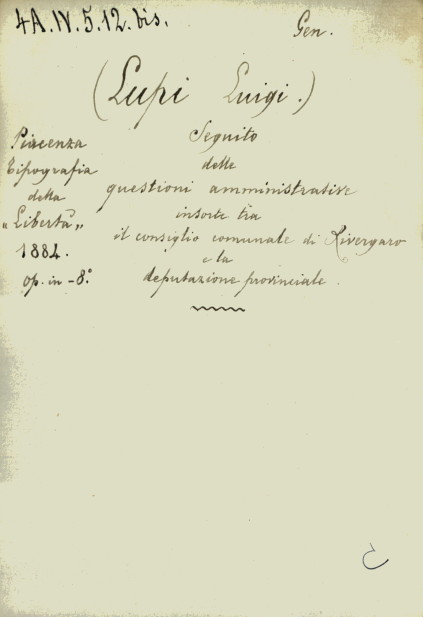 4A.IV.5.12.bis.
Gen.
(Lupi Luigi.)
Piacenza
Tipografia
della
"Libertà„
1884.
op. in-8°.
Seguito
delle
questioni amministrative
insorte tra
il consiglio comunale di Rivergaro
e la
deputazione provinciale.